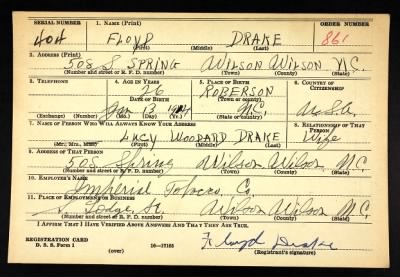 SERIAL NUMBER 1. NAME (Print) ORDER NUMBER
404 FLOYD DRAKE 861
(First) (Middle) (Last)
2. ADDRESS (Print)
508 S SPRING WILSON WILSON N.C.
(Number and street or R. F. D. number) (Town) (County) (State)
3. TELEPHONE 4. AGE IN YEARS 5. PLACE OF BIRTH 6. COUNTRY OF CITIZENSHIP
26 ROBERSON
DATE OF BIRTH (Town or county)
Jan 13 1914 N.C. U.S.A.
(Exchange) (Number) (Mo.) (Day) (Yr.) (State or country)
7. NAME OF PERSON WHO WILL ALWAYS KNOW YOUR ADDRESS 8. RELATIONSHIP OF THAT PERSON
LUCY WOODARD DRAKE Wife
(Mr., Mrs., Miss) (First) (Middle) (Last)
9. ADDRESS OF THAT PERSON
508 Spring Wilson Wilson, N.C.
(Number and street or R. F. D. number) (Town) (County) (State)
10. EMPLOYER'S NAME
Imperial Tobacco, Co.
11. PLACE OF EMPLOYMENT OR BUSINESS
S. Lodge, St. Wilson Wilson N.C.
(Number and street or R. F. D. number) (Town) (County) (State)
I AFFIRM THAT I HAVE VERIFIED ABOVE ANSWERS AND THAT THEY ARE TRUE.
REGISTRATION CARD Floyd Drake
D. S. S. Form 1 (over) 16—17105 (Registrant's signature)